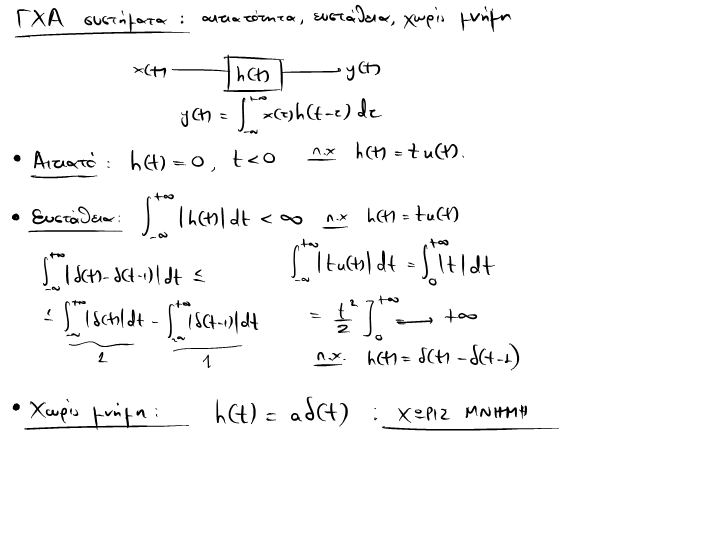 ΓΧΑ συστήματα : αιτιατότητα, ευστάθεια, χωρίς μνήμη
x(t) h(t) y(t)
y(t) = ∫_{-∞}^{+∞} x(τ)h(t-τ) dτ
• Αιτιατό : h(t) = 0, t<0 π.χ h(t) = t u(t).
• Ευστάθεια: ∫_{-∞}^{+∞} |h(t)| dt < ∞ π.χ h(t) = t u(t)
∫_{-∞}^{+∞} |t u(t)| dt = ∫_{0}^{+∞} |t| dt
= t²/2 ]_{0}^{+∞} → +∞
π.χ. h(t) = δ(t) - δ(t-1)
∫_{-∞}^{+∞} |δ(t) - δ(t-1)| dt ≤
≤ ∫_{-∞}^{+∞} |δ(t)| dt - ∫_{-∞}^{+∞} |δ(t-1)| dt
1 1
• Χωρίς μνήμη : h(t) = aδ(t) : ΧΩΡΙΣ ΜΝΗΜΗ